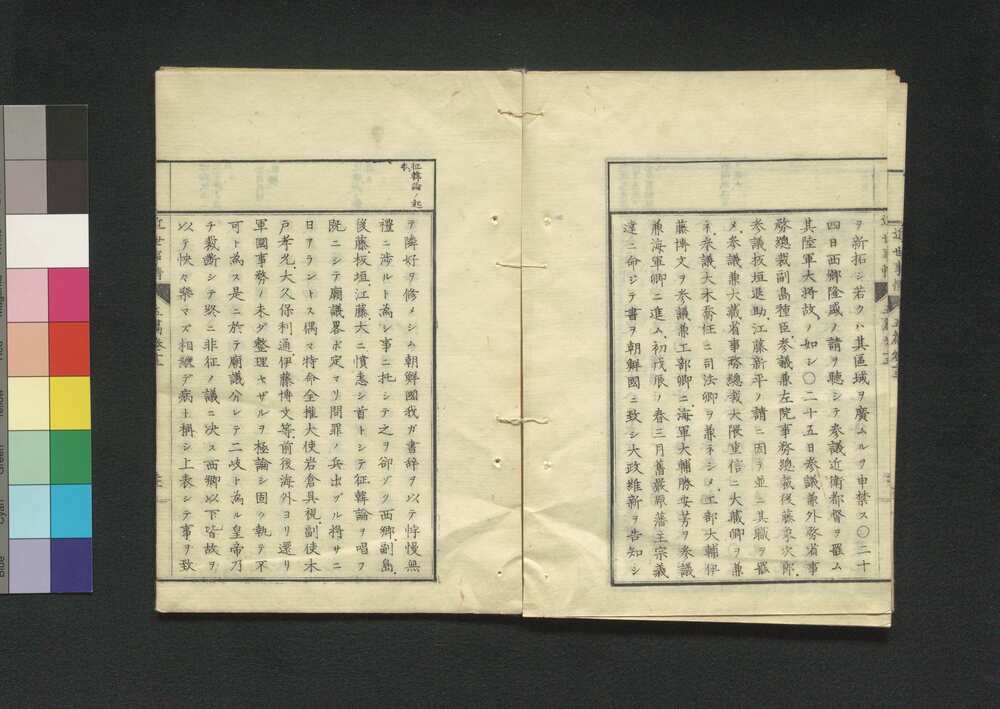 ヲ新拓シ若クハ其區域ヲ廣ムルヲ申禁ス〇二十
四日西郷隆盛ノ請ヲ聽シテ參議近衛都督ヲ罷ム
其陸軍大將故ノ如シ〇二十五日參議兼外務省事
務總裁副島種臣參議兼左院事務總裁後藤象次郎
參議板垣退助江藤新平ノ請ニ因テ並ニ其職ヲ罷
メ參議兼大藏省事務總裁大隈重信ニ大藏卿ヲ兼
ネ參議大木喬任ニ司法卿ヲ兼ネシメ工部大輔伊
藤博文ヲ參議兼工部卿ニ海軍大輔勝安芳ヲ參議
兼海軍卿ニ進ム初戊辰ノ春三月舊嚴原藩主宗義
達ニ命ジテ書ヲ朝鮮國ニ致シ大政維新ヲ告知シ
近世事情
五編卷十五
征韓論ノ起
本
テ隣好ヲ修メシム朝鮮國我ガ書辞ヲ以テ悖慢無
禮ニ渉ルト為シ事ニ托シテ之ヲ卻ゾク西郷副島
後藤板垣江藤大ニ憤恚シ首トシテ征韓論ヲ唱フ
既ニシテ廟議畧ボ定マリ問罪ノ兵出ブル將サニ
日ヲラントス偶マ特命全權大使岩倉具視副使木
戸孝允大久保利通伊藤博文等前後海外ヨリ還リ
軍國事務ノ未ダ整理セザルヲ極論シ固ク執テ不
可ト為ス是ニ於テ廟議分レテ二岐ト為ル皇帝乃
チ裁斷シテ終ニ非征ノ議ニ决ス西郷以下皆故ヲ
以テ怏々樂マズ相繼デ病ト稱シ上表シテ事ヲ致
近世事情
五編卷十五